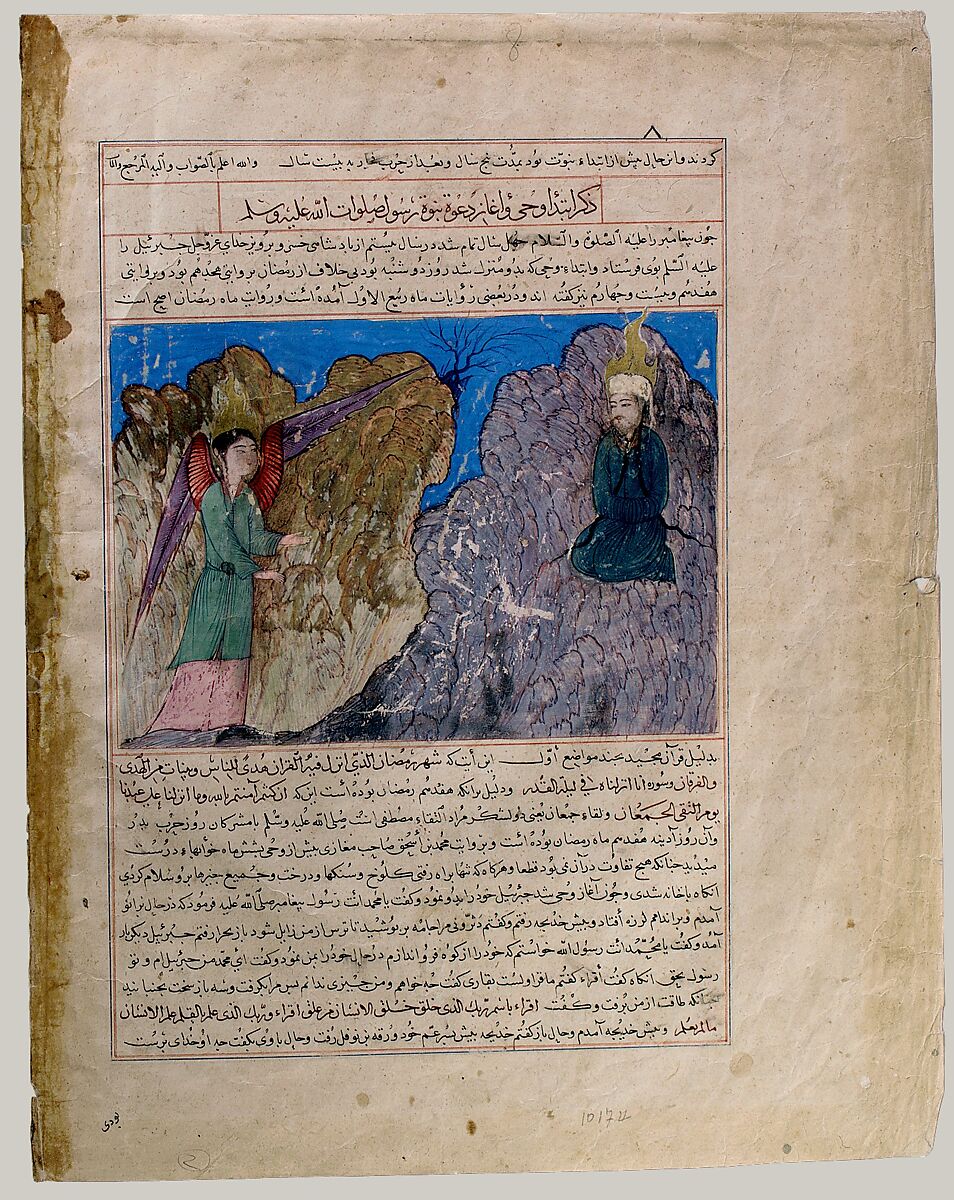 کردند و این حال پیش از ابتداء نبوت بود بمدت پنج سال و بعد از حرب فجار به بیست سال والله اعلم بالصواب والیه المرجع
ذکر ابتداء وحی و اغاز دعوة نبوة رسول صلوات الله علیه وسلم
چون پیغامبر را علیه الصلوة والسلام چهل سال تمام شد در سال بیستم از پادشاهی خسرو پرویز خدای عزوجل جبرئیل را
علیه السلم بوی فرستاد و ابتداء وحی که بدو منزل شد روز دوشنبه بود بی خلاف از رمضان بروایتی هجدهم بود و بروایتی
هفدهم و بیست و چهارم نیز گفته اند و در بعضی روایات ماه ربیع الاول آمده است و روایت ماه رمضان اصح است
بدلیل قرآن مجید بچند مواضع اول این آیت که شهر رمضان الذی انزل فیه القران هدی للناس وبینات من الهدی
والفرقان وسوره انا انزلناه فی لیلة القدر و دلیل برانکه هفدهم رمضان بوده است این که ان کنتم امنتم بالله وما انزلنا علی عبدنا
یوم التقی الجمعان و لقاء جمعان یعنی دو لشکر مراد التقاء مصطفی است صلی الله علیه وسلم با مشرکان روز حرب بدر
وآن روز آدینه هفدهم ماه رمضان بوده است و بروایت محمد بن اسحق صاحب مغازی پیش از وحی بشش ماه خوابهاء درست
میدید چنانکه هیچ تفاوت در آن نمی بود قطعا و هرگاه که تنها براه رفتی کلوخ و سنگها و درخت و جمیع چیزها برو سلام کردی
آنگاه با خانه شدی و چون آغاز وحی شد جبرئیل خود را بدو نمود و گفت یا محمد انت رسول الله پیغامبر صلی الله علیه فرمود که در حال بزانو
آمدم و بر اندامم لرزه افتاد و پیش خدیجه رفتم و گفتم دثرونی مرا جامه بر پوشید تا ترس از من زایل شود باز بحرا رفتم جبرئیل دیگر بار
آمد و گفت یا محمد انت رسول الله خواستم که خود را از کوه فرو اندازم در حال خود را بمن نمود و گفت ای محمد من جبرئیل ام و تو
رسول بحق آنگاه گفت اقراء گفتم ما قراء و لست بقاری گفت چه خواهم و من چیزی ندانم پس مرا بگرفت و سه بار سخت بجنبانید
چنانکه طاقت از من برفت و گفت اقراء باسم ربک الذی خلق خلق الانسان من علق اقراء وربک الذی علم بالقلم علم الانسان
مالم یعلم و پیش خدیجه آمدم و حال باز گفتم خدیجه پیش پسر عم خود ورقه بن نوفل رفت و حال با وی بگفت چه او خدای پرست
101722